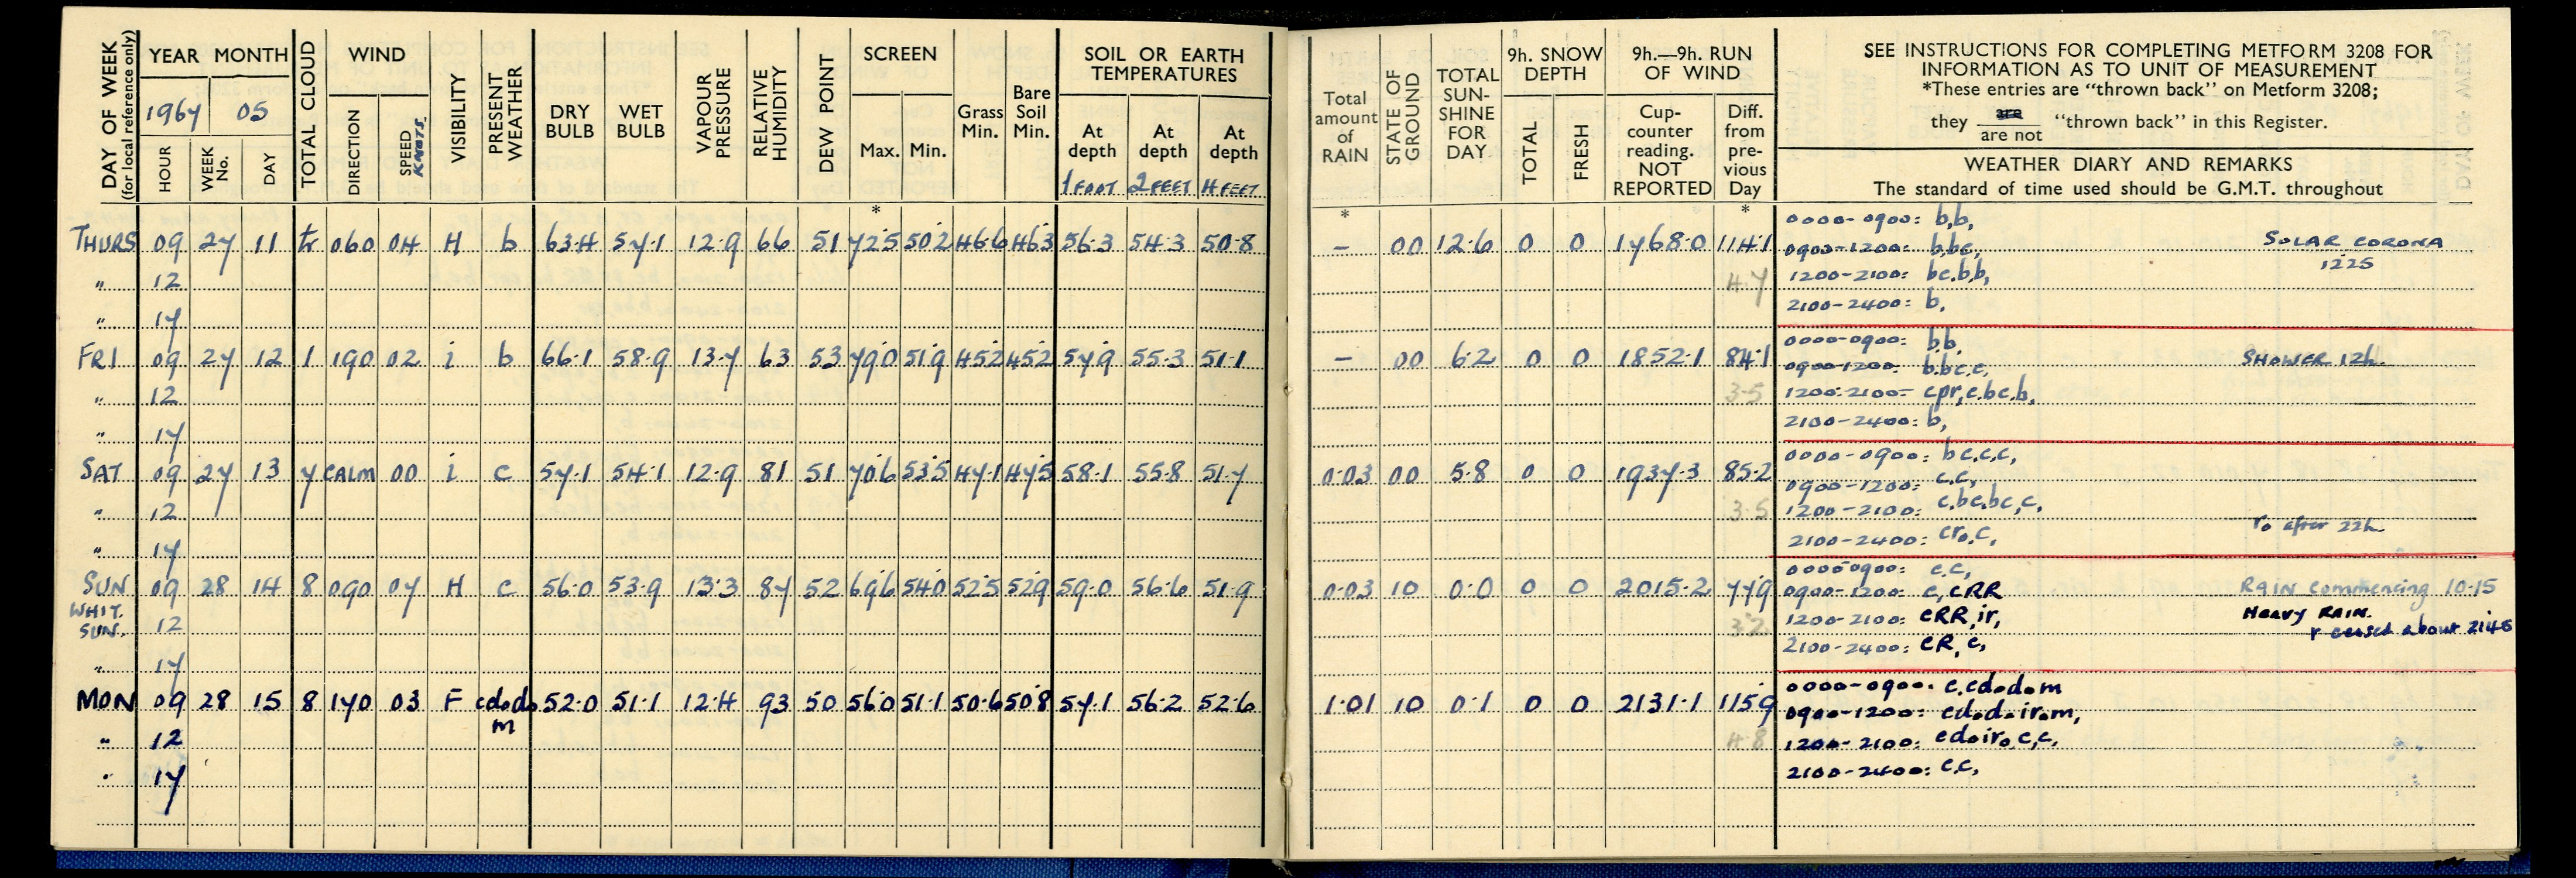 DAY OF WEEK (for local reference only)
YEAR MONTH
1967 05
HOUR
WEEK No.
DAY
TOTAL CLOUD
WIND
DIRECTION
SPEED KNOTS
VISIBILITY
PRESENT WEATHER
DRY BULB
WET BULB
VAPOUR PRESSURE
RELATIVE HUMIDITY
DEW POINT
SCREEN
Max. Min.
Grass Min.
Bare Soil Min.
SOIL OR EARTH TEMPERATURES
At depth 1 FOOT
At depth 2 FEET
At depth 4 FEET
Total amount of RAIN
STATE OF GROUND
TOTAL SUN-SHINE FOR DAY
9h. SNOW DEPTH
TOTAL
FRESH
9h.—9h. RUN OF WIND
Cup-counter reading. NOT REPORTED
Diff. from pre-vious Day
SEE INSTRUCTIONS FOR COMPLETING METFORM 3208 FOR
INFORMATION AS TO UNIT OF MEASUREMENT
*These entries are "thrown back" on Metform 3208;
they are / are not "thrown back" in this Register.
WEATHER DIARY AND REMARKS
The standard of time used should be G.M.T. throughout
* * *
THURS 09 27 11 tr 060 04 H b 63.4 57.1 12.9 66 51 72.5 50.2 46.6 46.3 56.3 54.3 50.8 – 00 12.6 0 0 1768.0 114.1
" 12 4.7
" 17
0000-0900: b,b,
0900-1200: b,bc, SOLAR CORONA
1225
1200-2100: bc,b,b,
2100-2400: b,
FRI 09 27 12 1 190 02 i b 66.1 58.9 13.7 63 53 79.0 51.9 45.2 45.2 57.9 55.3 51.1 – 00 6.2 0 0 1852.1 84.1
" 12 3.5
" 17
0000-0900: b,b,
0900-1200: b,bc,c, SHOWER 12h.
1200-2100- cpr,c,bc,b,
2100-2400: b,
SAT 09 27 13 7 CALM 00 i c 57.1 54.1 12.9 81 51 70.6 53.5 47.1 47.5 58.1 55.8 51.7 0.03 00 5.8 0 0 1937.3 85.2
" 12 3.5
" 17
0000-0900: bc,c,c,
0900-1200: c,c,
1200-2100: c,bc,bc,c,
2100-2400: cr₀,c, r₀ after 22h
SUN 09 28 14 8 090 07 H c 56.0 53.9 13.3 87 52 69.6 54.0 52.5 52.9 59.0 56.6 51.9 0.03 10 0.0 0 0 2015.2 77.9
WHIT. SUN. 12 3.2
" 17
0000-0900: c,c,
0900-1200: c,cRR Rain commencing 10.15
1200-2100: cRR,ir, Heavy RAIN.
2100-2400: cR, c, r ceased about 2145
MON 09 28 15 8 170 03 F cd₀d₀m 52.0 51.1 12.4 93 50 56.0 51.1 50.6 50.8 57.1 56.2 52.6 1.01 10 0.1 0 0 2131.1 115.9
" 12 4.8
" 17
0000-0900. c,cd₀d₀m
0900-1200: cd₀d₀ir₀m,
1200-2100: cd₀ir₀,c,c,
2100-2400: c,c,